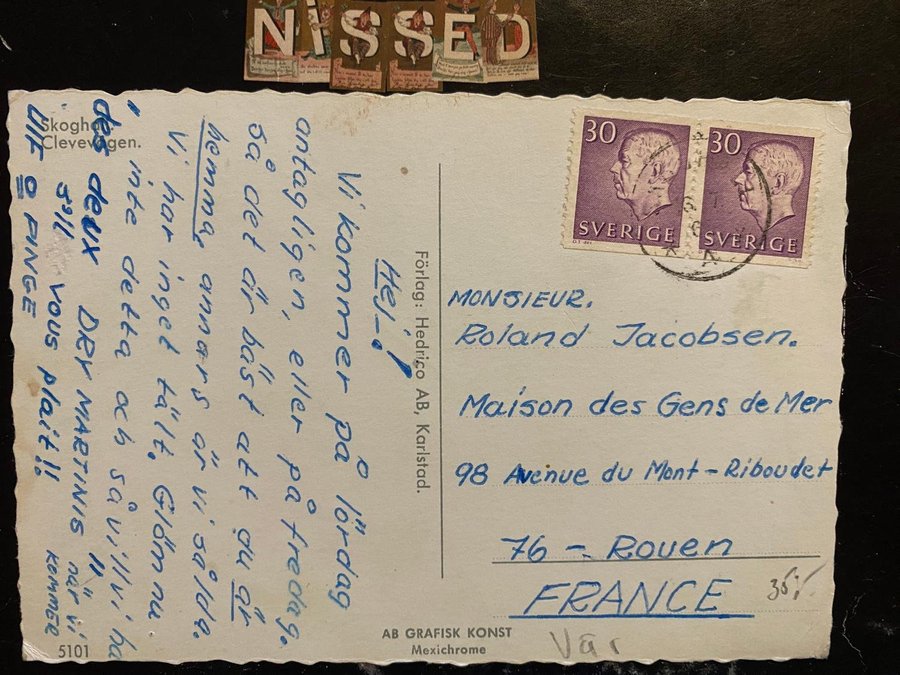 NiSSED
Skoghall.
Clevevägen.
Hej!
Vi kommer på lördag
antagligen, eller på fredag.
Så det är bäst att gu är
hemma, annars är vi sålda.
Vi har inget tält. Glöm nu
inte detta och så vill vi ha
"des deux DRY MARTINIS" när vi
s'il vous plait!! kommer
ULF o PINGE
Förlag: Hedrico AB, Karlstad.
30 SVERIGE
30 SVERIGE
MONSIEUR.
Roland Jacobsen.
Maison des Gens de Mer
98 Avenue du Mont-Riboudet
76 - Rouen
FRANCE
35:-
Vär
AB GRAFISK KONST
Mexichrome
5101